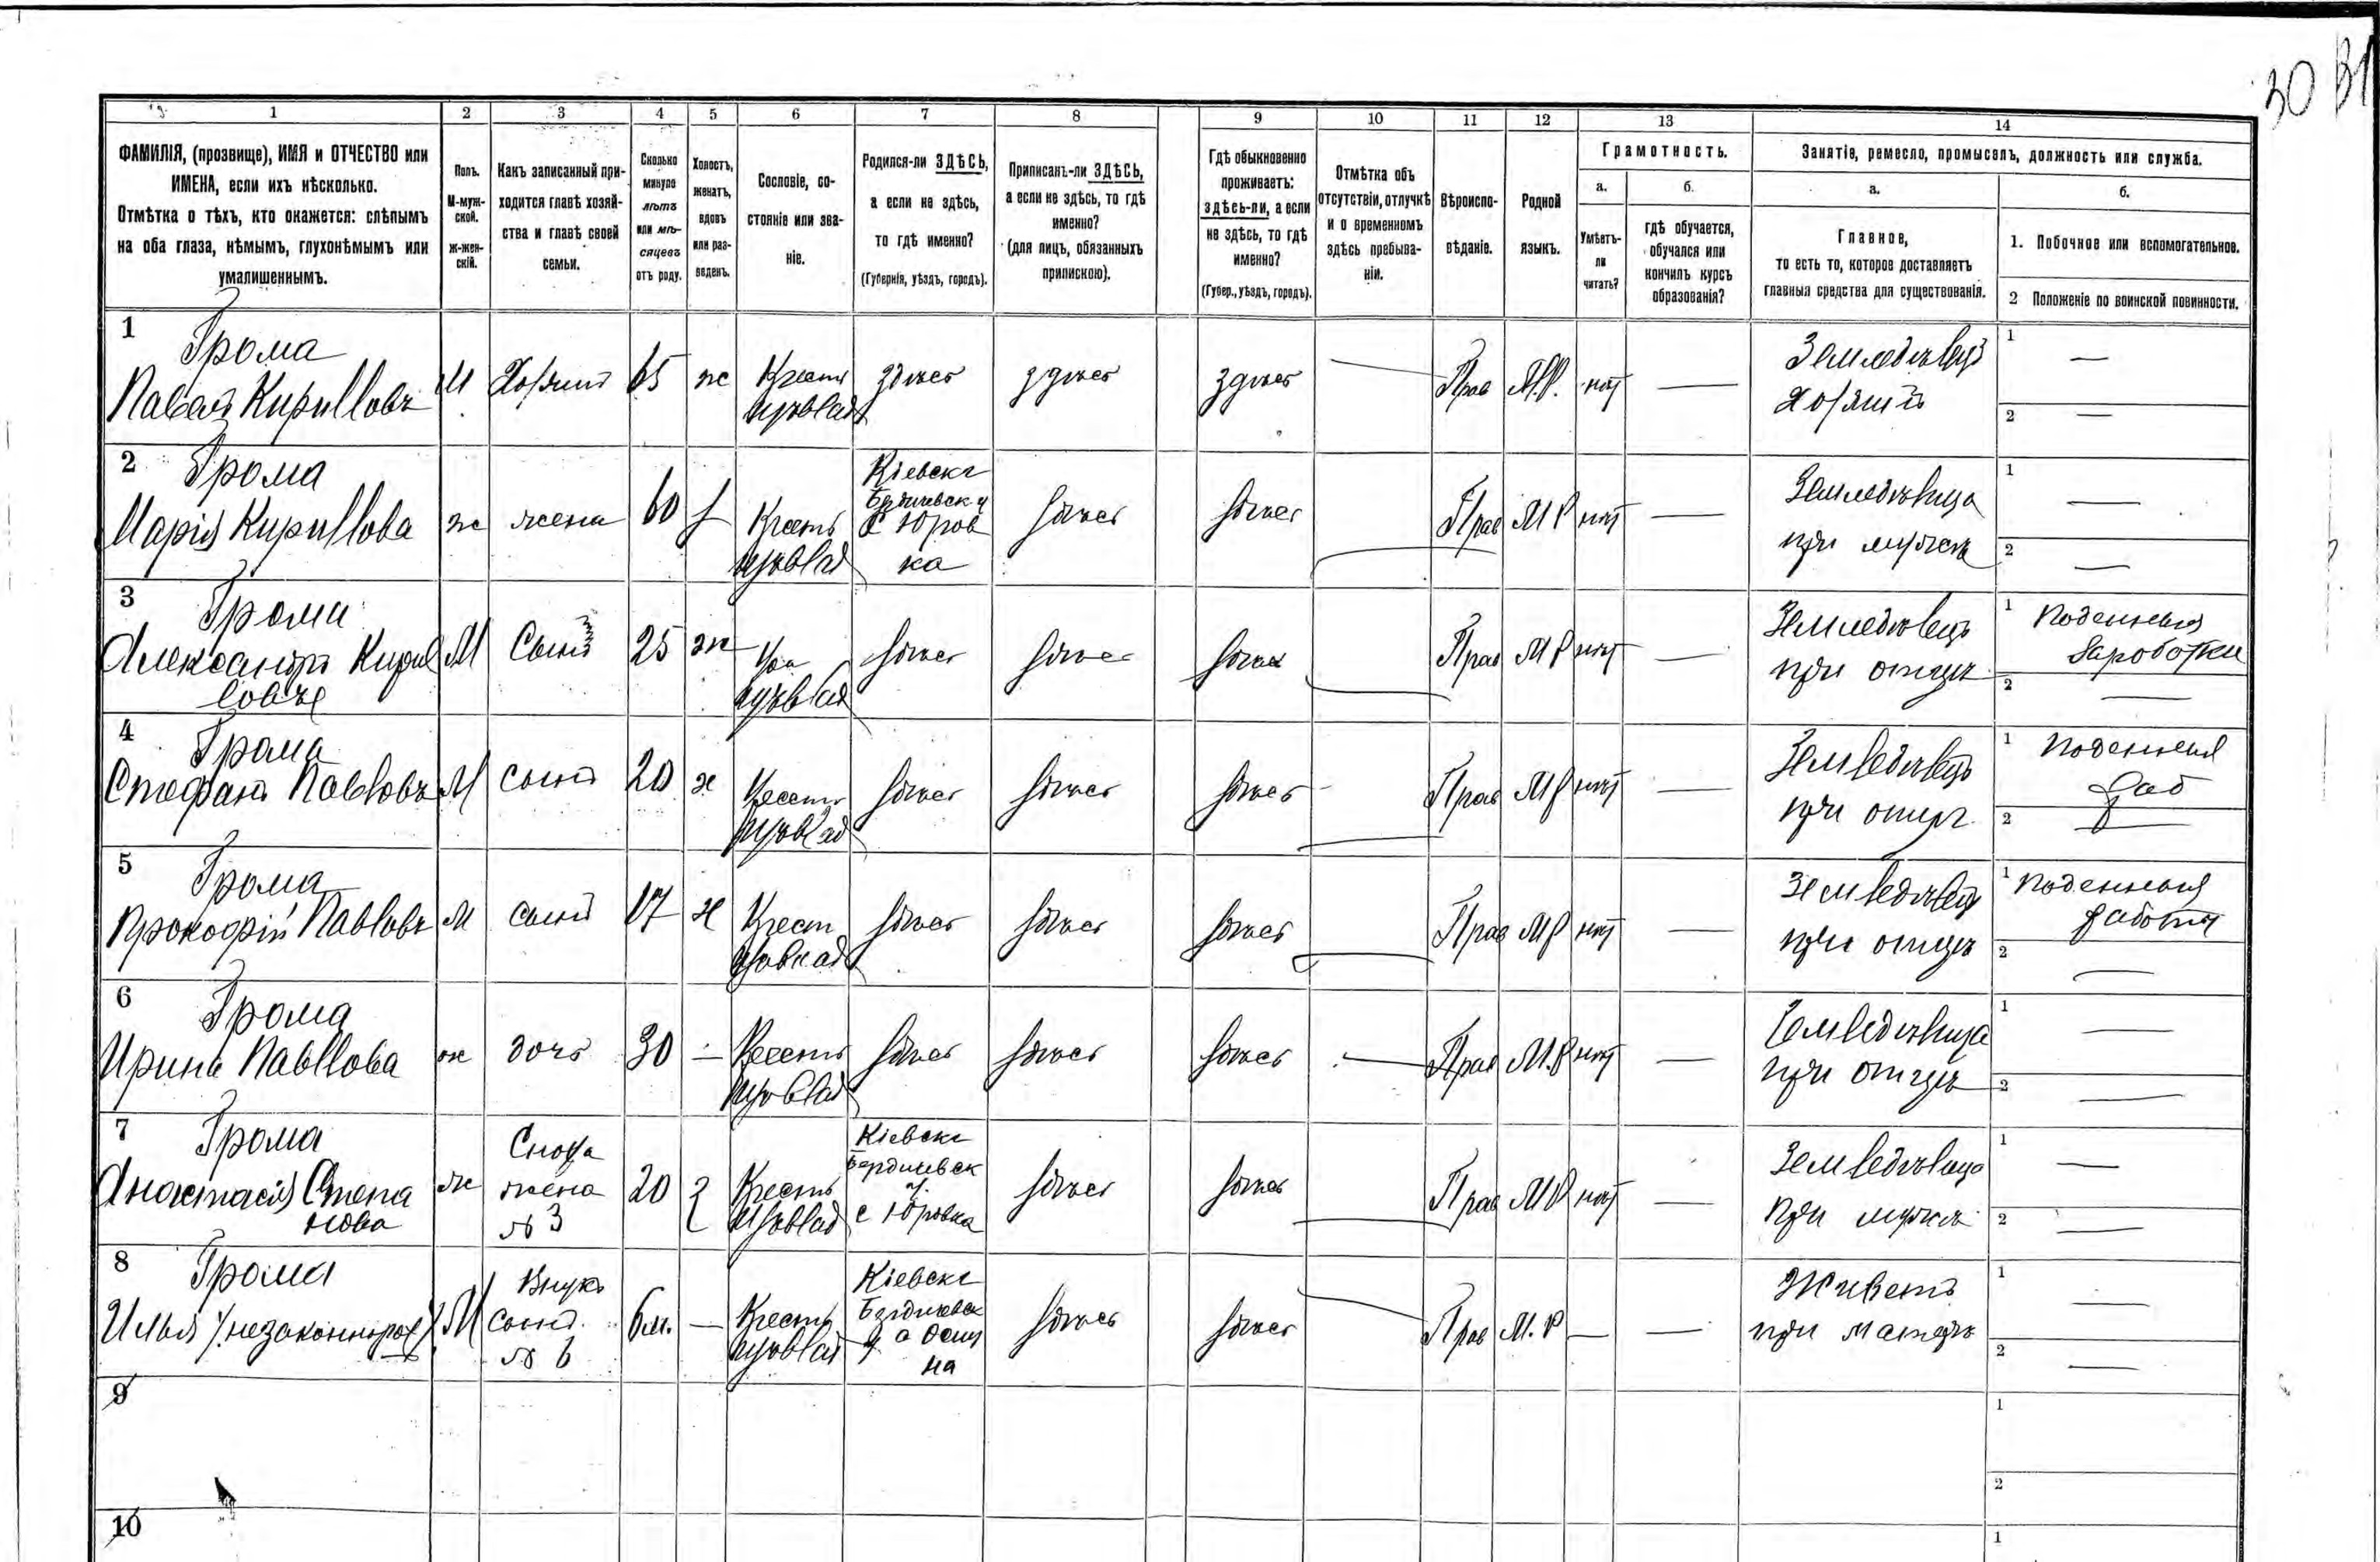 30 31
1 2 3 4 5 6 7 8 9 10 11 12 13 14
ФАМИЛІЯ, (прозвище), ИМЯ и ОТЧЕСТВО или
ИМЕНА, если ихъ нѣсколько.
Отмѣтка о тѣхъ, кто окажется: слѣпымъ
на оба глаза, нѣмымъ, глухонѣмымъ или
умалишеннымъ.
Полъ.
М-муж-
ской.
ж-жен-
скій.
Какъ записанный при-
ходится главѣ хозяй-
ства и главѣ своей
семьи.
Сколько
минуло
лѣтъ
или мѣ-
сяцевъ
отъ роду.
Холостъ,
женатъ,
вдовъ
или раз-
веденъ.
Сословіе, со-
стояніе или зва-
ніе.
Родился-ли ЗДѢСЬ,
а если не здѣсь,
то гдѣ именно?
(Губернія, уѣздъ, городъ).
Приписанъ-ли ЗДѢСЬ,
а если не здѣсь, то гдѣ
именно?
(для лицъ, обязанныхъ
припискою).
Гдѣ обыкновенно
проживаетъ:
здѣсь-ли, а если
не здѣсь, то гдѣ
именно?
(Губер., уѣздъ, городъ).
Отмѣтка объ
отсутствіи, отлучкѣ
и о временномъ
здѣсь пребыва-
ніи.
Вѣроиспо-
вѣданіе.
Родной
языкъ.
Грамотность.
а.
Умѣетъ-
ли
читать?
б.
гдѣ обучается,
обучался или
кончилъ курсъ
образованія?
Занятіе, ремесло, промыселъ, должность или служба.
а.
Главное,
то есть то, которое доставляетъ
главныя средства для существованія.
б.
1. Побочное или вспомогательное.
2 Положеніе по воинской повинности.
1 Грома
Павелъ Кирилловъ
М Хозяинъ 65 ж Крест здѣсь здѣсь здѣсь — Прав М.Р. нѣт — Земледѣлецъ
хозяинъ
1 —
2 —
2 Грома
Марія Кириллова
ж жена 60 Крест
Кіевск
Бердичевск у
с Юров
ка
здѣсь здѣсь — Прав МР нѣт — Земледѣлица
при мужѣ
1 —
2 —
3 Грома
Александръ Кирил
ловъ
М Сынъ 25 ж здѣсь здѣсь здѣсь — Прав МР нѣт — Земледѣлецъ
при отцѣ
1 Поденныя
Заработки
2 —
4 Грома
Стефанъ Павловъ
М сынъ 20 х Крест здѣсь здѣсь здѣсь — Прав МР нѣт — Земледѣлецъ
при отцѣ
1 поденныя
раб
2 —
5 Грома
Прокофій Павловъ
М сынъ 17 х Крест здѣсь здѣсь здѣсь — Прав МР нѣт — Земледѣлецъ
при отцѣ
1 Поденныя
работы
2 —
6 Грома
Ирина Павлова
ж дочь 30 — Крест здѣсь здѣсь здѣсь — Прав М.Р нѣт — Земледѣлица
при отцѣ
1 —
2 —
7 Грома
Анастасія Степа
нова
ж
Сноха
жена
№ 3
20 Крест
Кіевск
Бердичевск
у.
с Юровка
здѣсь здѣсь — Прав МР нѣт — Земледѣлица
при мужѣ
1 —
2 —
8 Грома
Илья (незаконнорож)
М
Внукъ
сынъ
№ 6
6 м. — Крест
Кіевск
Бердичевск
здѣсь здѣсь — Прав М.Р — — Живетъ
при матерѣ
1 —
2 —
9
1
2
10
1